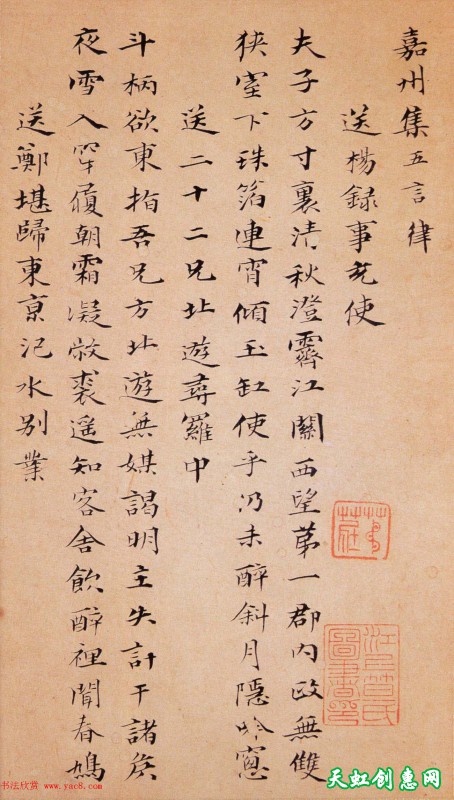 嘉州集五言律
送楊録事充使
夫子方寸裏清秋澄霽江關西望第一郡内政無雙
狹室下珠箔連宵傾玉缸使乎仍未醉斜月隱吟窻
送二十二兄北遊尋羅中
斗柄欲東指吾兄方北遊無媒謁明主失計干諸矦
夜雪入穿履朝霜凝敝裘遥知客舍飲醉裡聞春鳩
送鄭堪歸東京汜水别業
江上笪氏
圖書印
书法欣赏 www.yac8.com
天虹创惠网